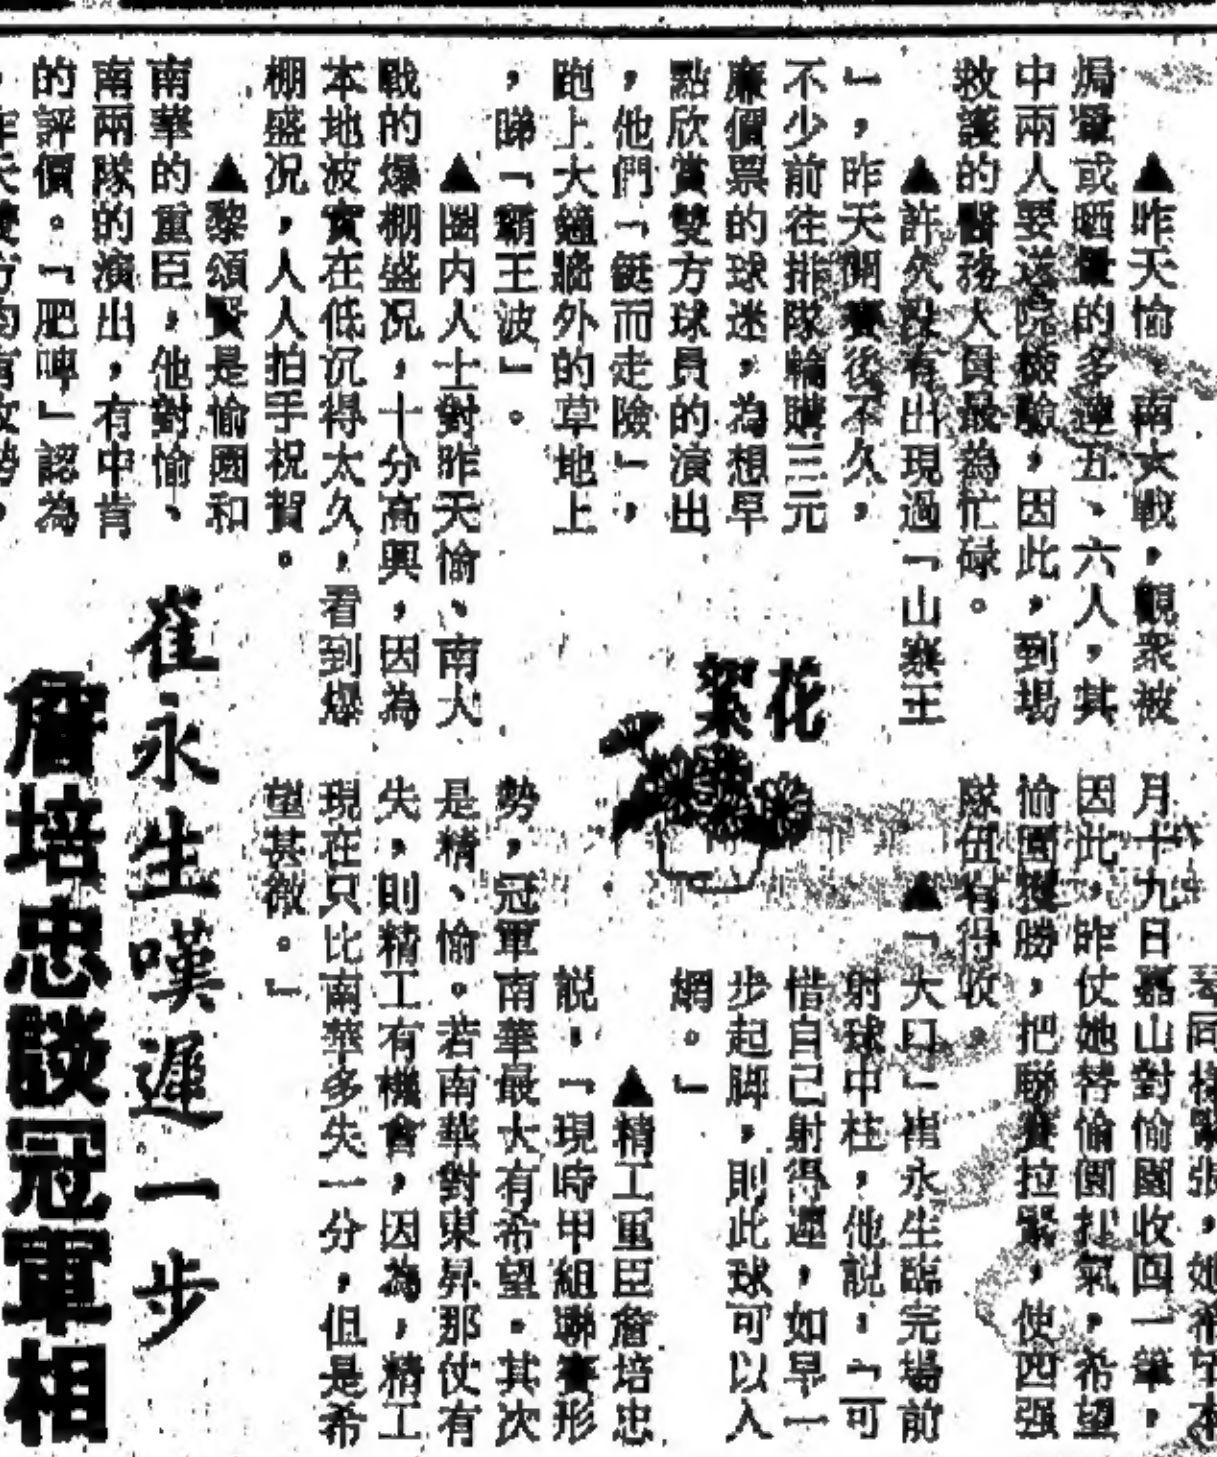 ▲昨天愉、南大戰,觀衆被
焗暈或晒暈的多達五、六人,其
中兩人要送院檢驗,因此,到場
救護的醫務人員最為忙碌。
▲許久沒有出現過「山寨王
」,昨天開賽後不久,
不少前往排隊輪購三元
廉價票的球迷,為想早
點欣賞雙方球員的演出
,他們「鋌而走險」,
跑上大鐘牆外的草地上
,睇「霸王波」。
▲圈内人士對昨天愉、南大
戰的爆棚盛况,十分高興,因為
本地波實在低沉得太久,看到爆
棚盛况,人人拍手祝賀。
▲黎頌賢是愉園和
南華的重臣,他對愉、
南兩隊的演出,有中肯
的評價。「肥啤」認為
花絮
崔永生嘆遲一步
詹培忠談冠軍相
同樣緊張,她希望本
月十九日嘉山對愉園收回一筆,
因此,昨仗她替愉園打氣,希望
愉園獲勝,把聯賽拉緊,使四强
隊伍有得收。
▲「大口」崔永生臨完場前
射球中柱,他說:「可
惜自己射得遲,如早一
步起脚,則此球可以入
網。」
▲精工重臣詹培忠
說:「現時甲組聯賽形
勢,冠軍南華最大有希望。其次
是精、愉。若南華對東昇那仗有
失,則精工有機會,因為,精工
現在只比南華多失一分,但是希
望甚微。」